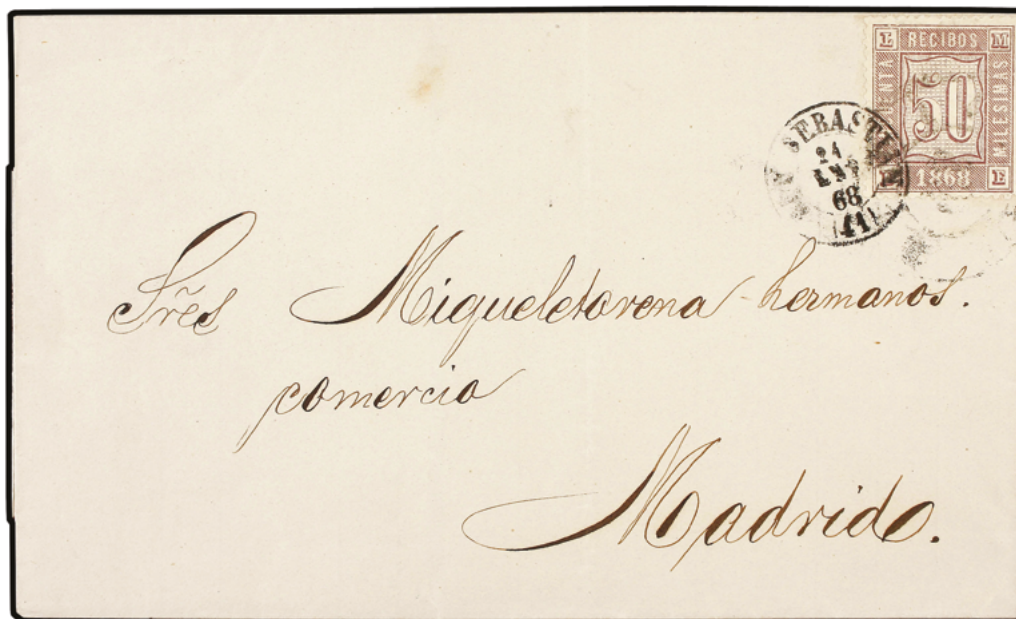 L RECIBOS M
CUENTA
50
MILESIMAS
1868 E
SAN SEBASTIAN
24
ENE
68
(11)
Sres Migueletorena hermanos.
comercio
Madrid.